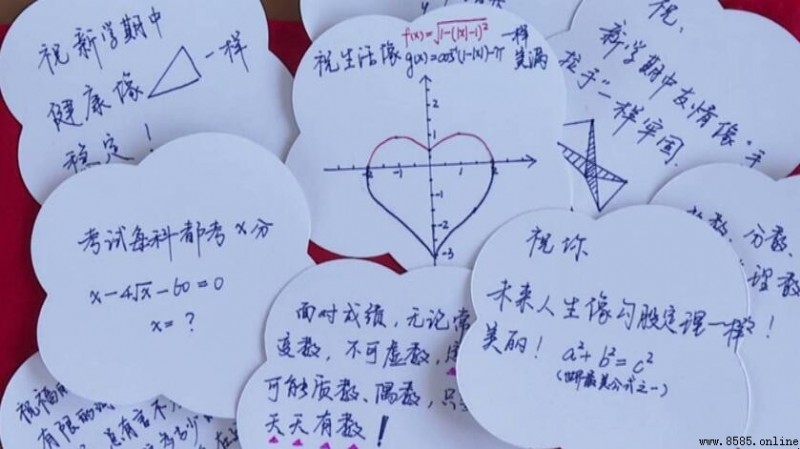 祝新学期中
健康像 一样
稳定！
f(x)=√(1-(|x|-1)²)
祝生活像 g(x)=cos⁻¹(1-|x|)-π 一样
美满
2
1
-2 -1 1 2
-1
-2
-3
祝：
新学期中友情像"手
拉手"一样牢固.
考试每科都考x分
x-4√x-60=0
x=？
面对成绩，无论常
变数，不可虚数，
可能质数、偶数，
天天有数！
数、分数、
理数
祝你
未来人生像勾股定理一样
美丽！
a²+b²=c²
(世界最美公式之一)
祝福
有限的
www.8585.online